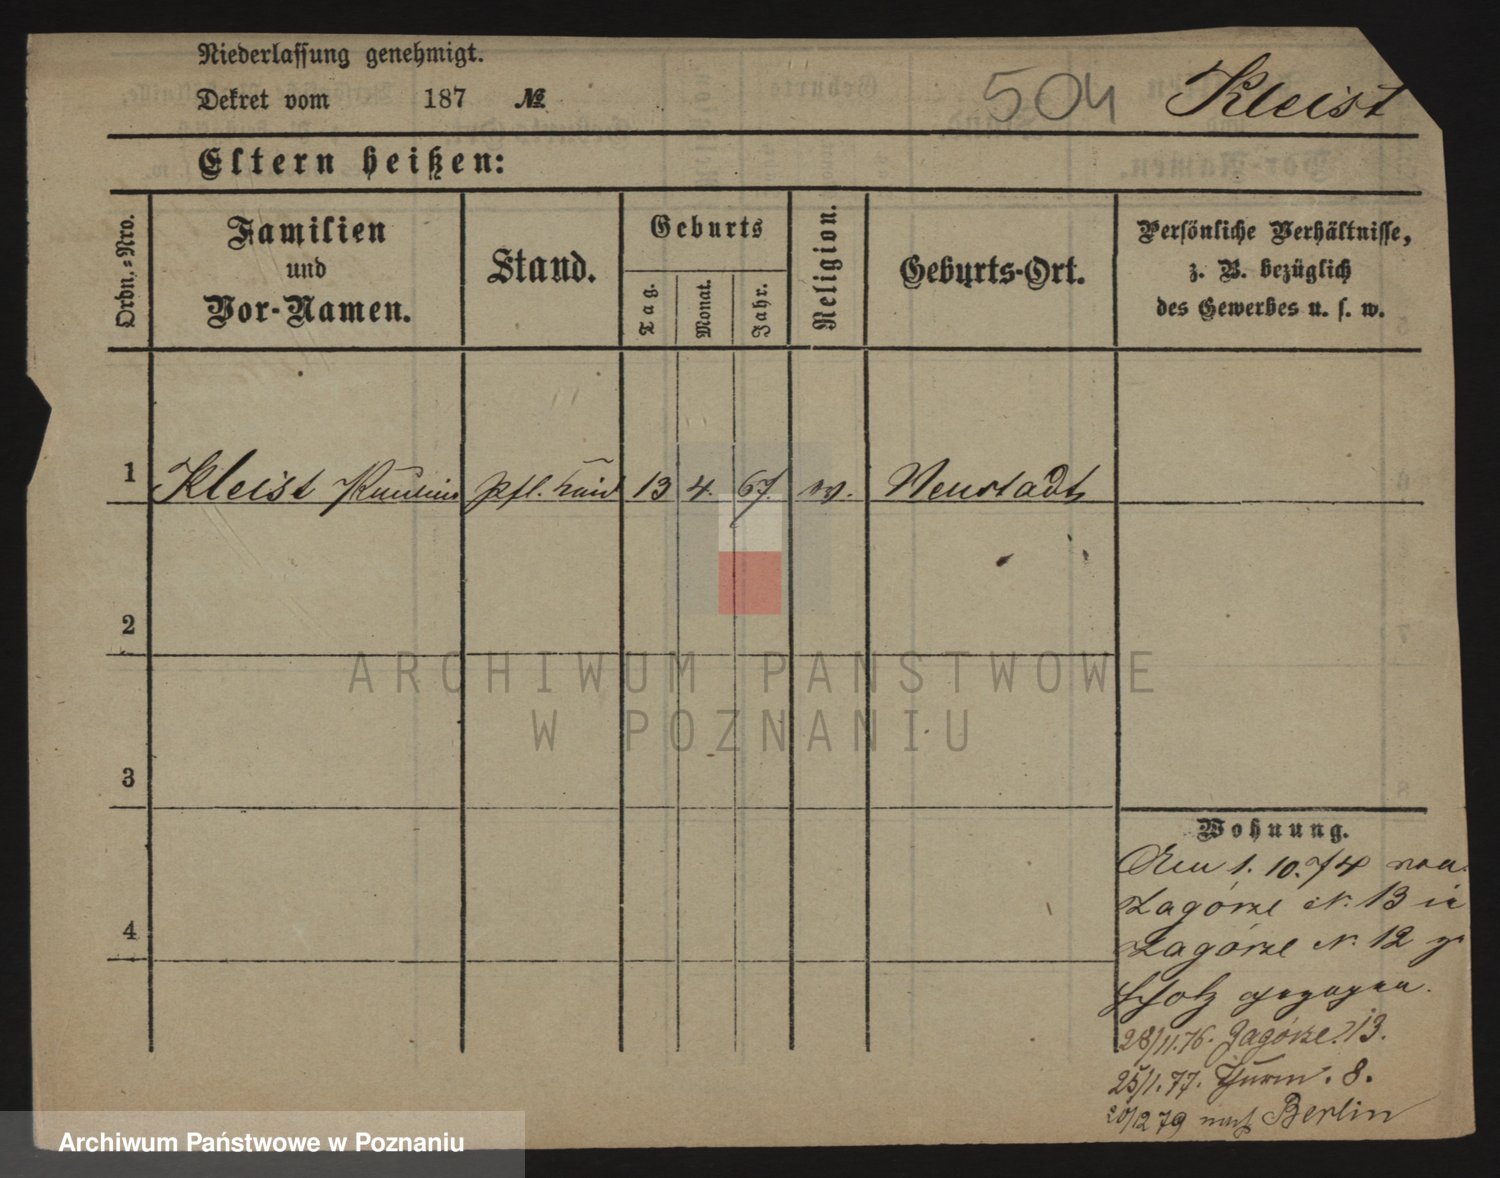 Niederlassung genehmigt.
Dekret vom 187 №
504 Kleist
Eltern heißen:
Ordn.-Nro.
Familien und Vor-Namen.
Stand.
Geburts
Tag.
Monat.
Jahr.
Religion.
Geburts-Ort.
Persönliche Verhältnisse,
z. B. bezüglich
des Gewerbes u. s. w.
1 Kleist pfl. 13 4. 67. Neustadt
2
3
4
Wohnung.
Am 1. 10. 74 von
Zagórze N. 13 in
Zagórze N. 12
gezogen.
28/11. 76. Zagórze 13.
25/1. 77. Thurm. 8.
20/12 79 nach Berlin
ARCHIWUM PAŃSTWOWE
W POZNANIU
Archiwum Państwowe w Poznaniu